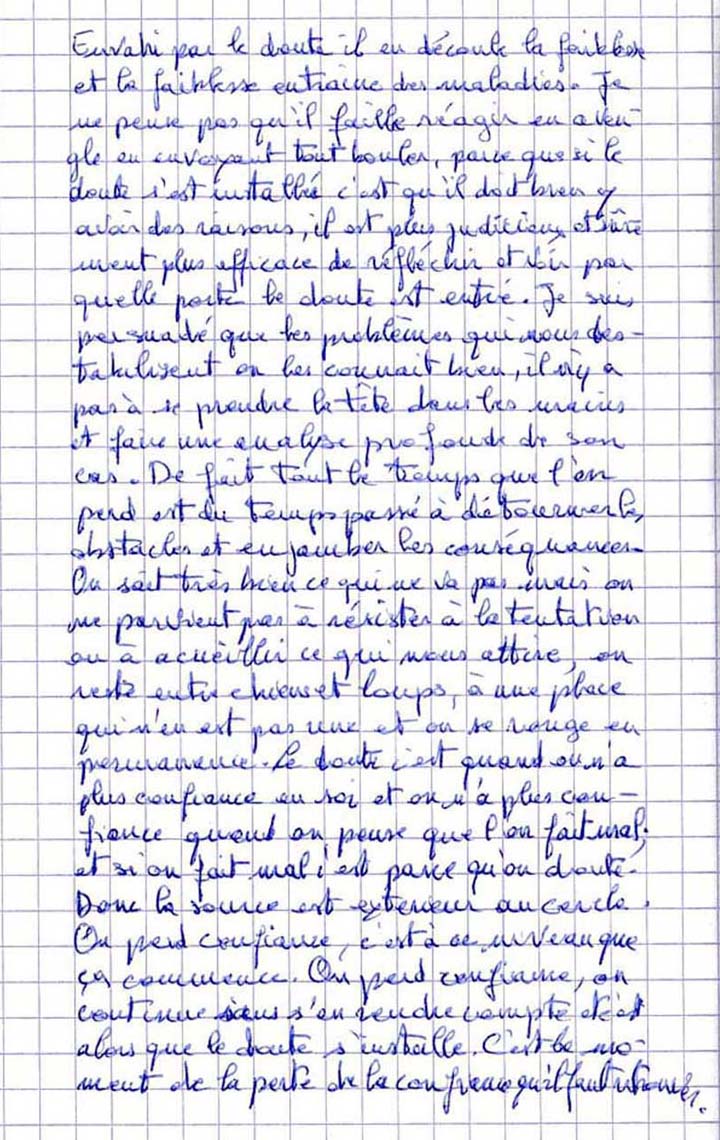 Envahi par le doute il en découle la faiblesse
et la faiblesse entraine des maladies. Je
ne pense pas qu'il faille réagir en aveu-
gle en envoyant tout bouler, parce que si le
doute s'est installé c'est qu'il doit bien y
avoir des raisons, il est plus judicieux et sûre
ment plus efficace de réfléchir et voir par
quelle porte le doute est entré. Je suis
persuadé que les problèmes qui nous des-
tabilisent on les connait bien, il n'y a
pas à se prendre la tête dans les mains
et faire une analyse profonde de son
cas. De fait tout le temps que l'on
perd est du temps passé à détourner les
obstacles et enjamber les conséquances.
On sait très bien ce qui ne va pas mais on
ne parvient pas à résister à la tentation
ou à acueillir ce qui nous attire, on
reste entre chiens et loups, à une place
qui n'en est pas une et on se ronge en
permanence. Le doute c'est quand on n'a
plus confiance en soi et on n'a plus con-
fiance quand on pense que l'on fait mal,
et si on fait mal c'est parce qu'on doute.
Donc la source est exterieur au cercle.
On perd confiance, c'est à ce niveau que
ça commence. On perd confiance, on
continue sans s'en rendre compte et c'est
alors que le doute s'installe. C'est le mo-
ment de la perte de la confiance qu'il faut